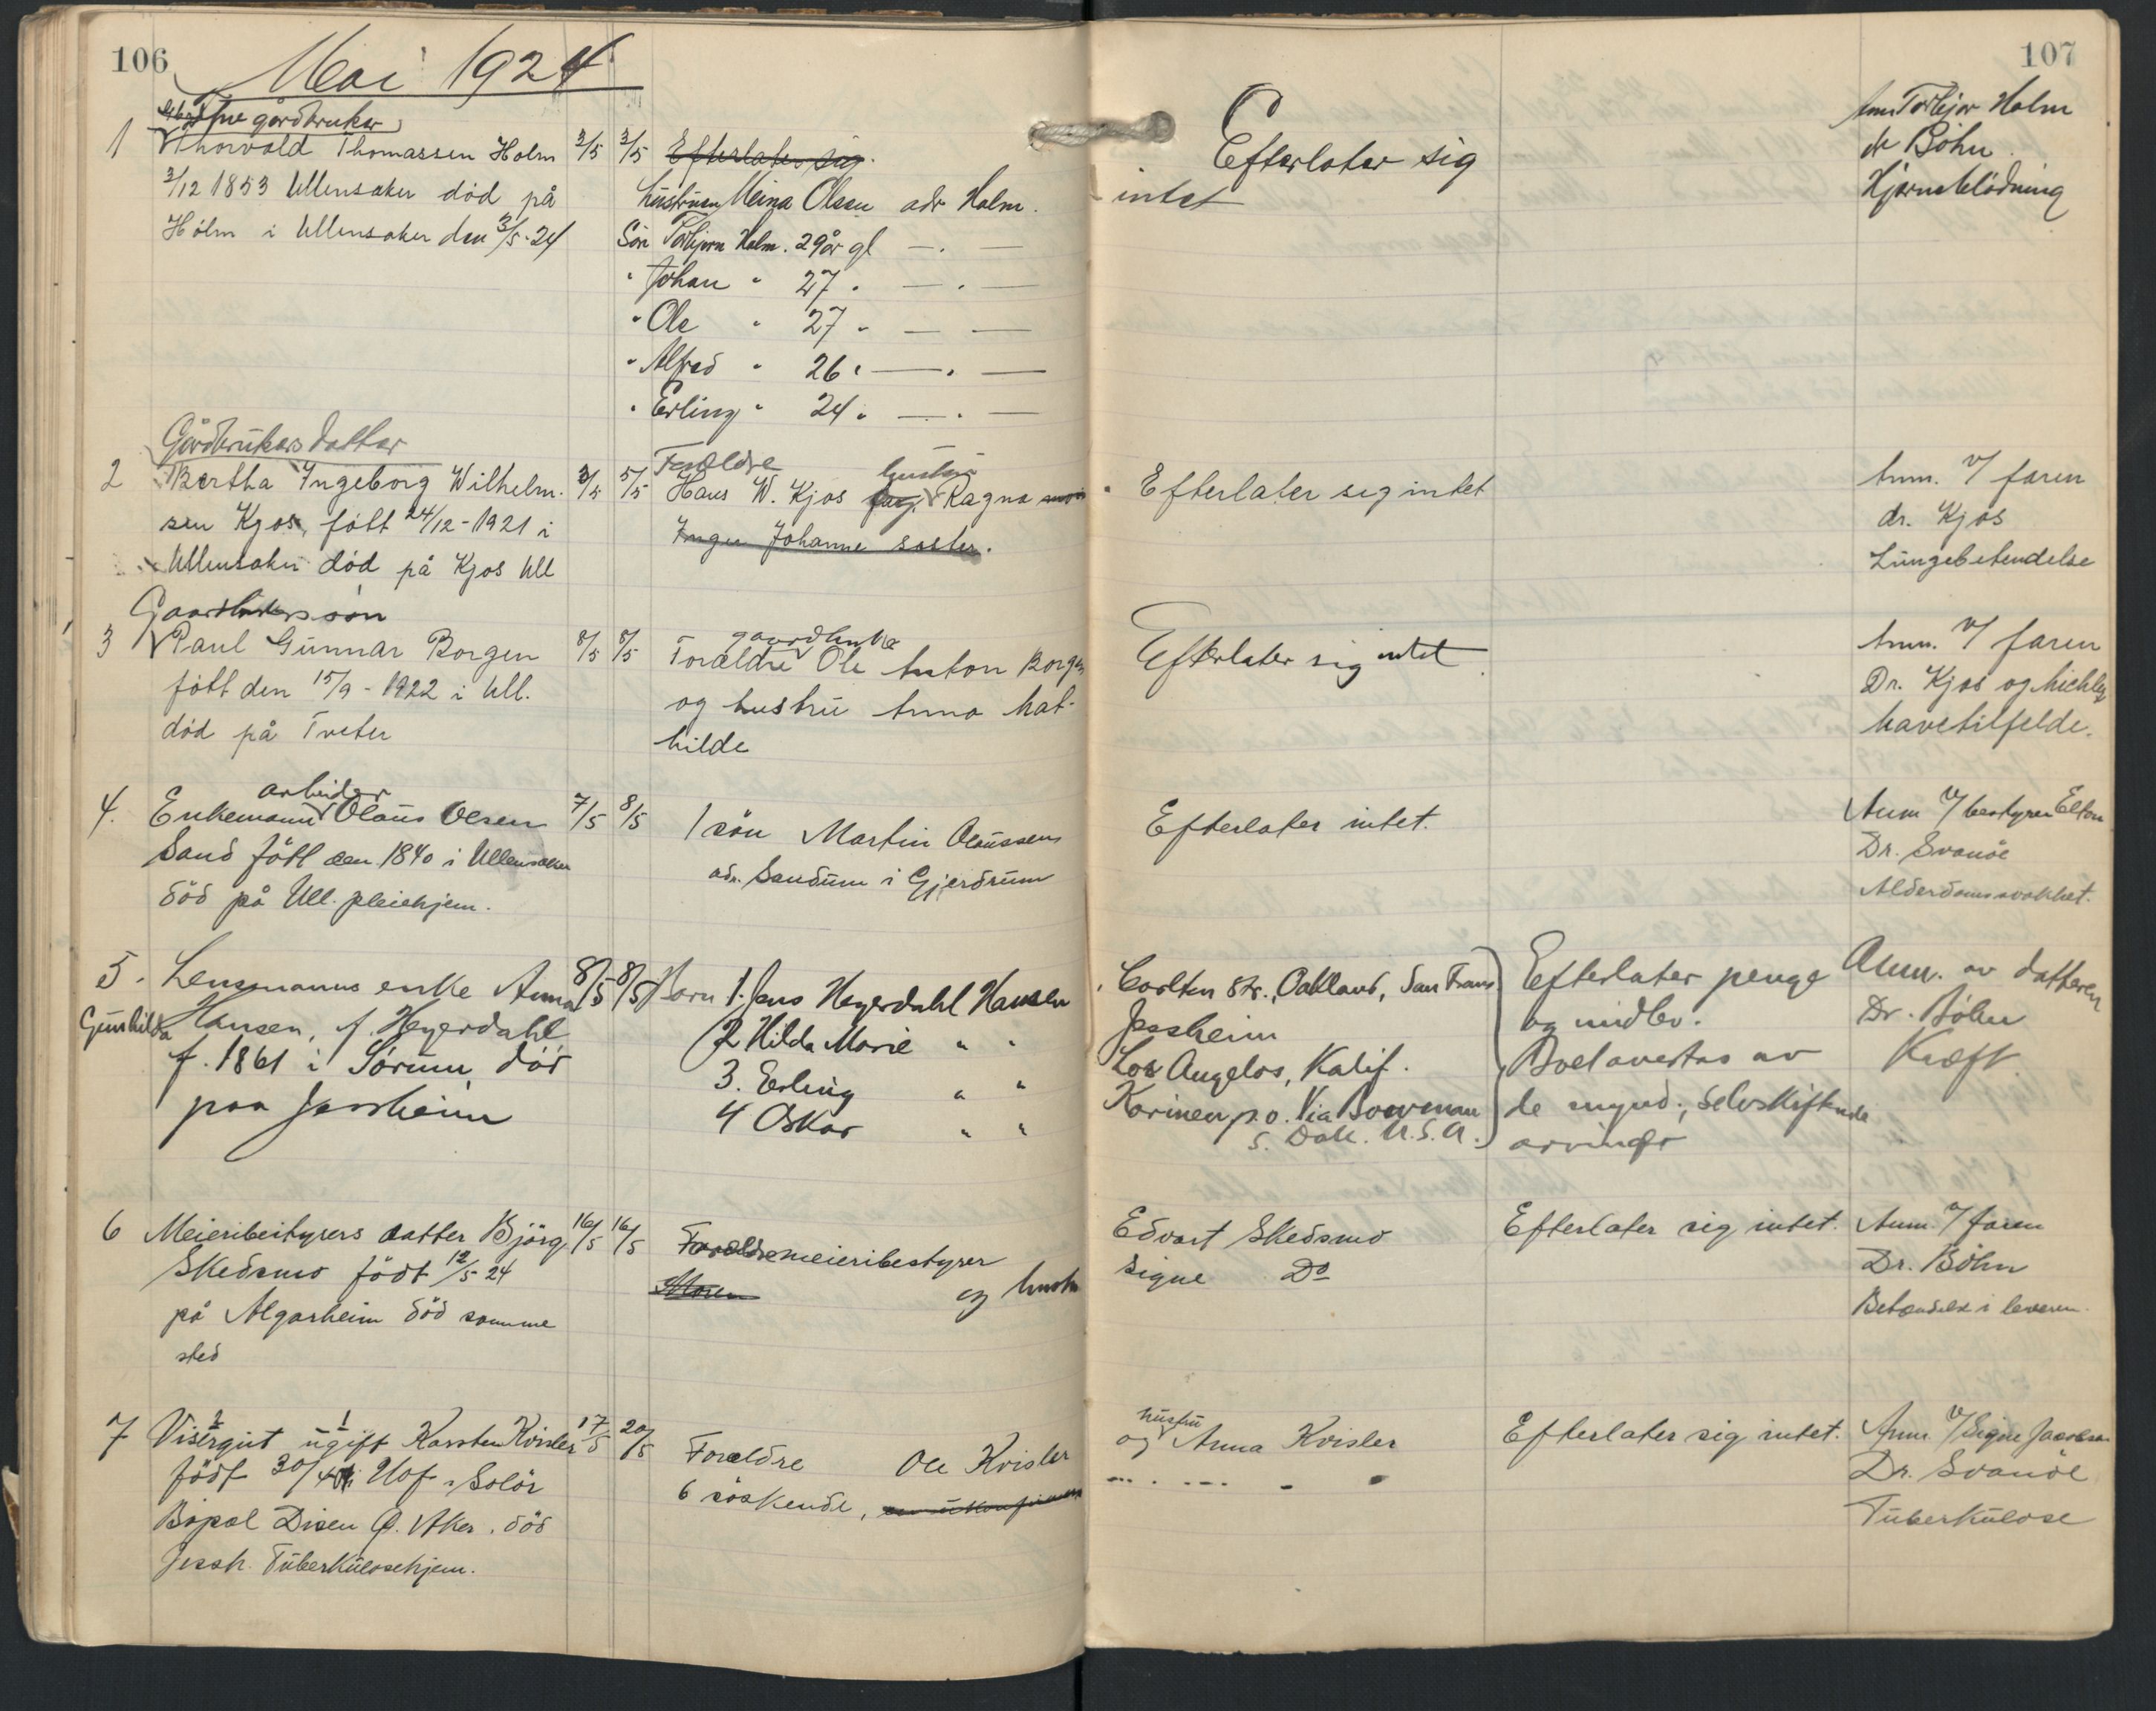 106
Mai 1924
gårdbruker
1 Thorvald Thomassen Holm 3/5 3/5 Efterlater sig.
3/12 1853 Ullensaker död på
Holm i Ullensaker den 3/5-24
hustruen Meina Olsen adr Holm.
Sön Torbjørn Holm. 29 år gl — . —
" Johan " 27 " — . —
" Ole " 27 " — —
" Alfred " 26 " — . —
" Erling " 24 " — . —
Gårdbrukers datter
2 Bertha Ingeborg Wilhelm- 3/5 5/5
sen Kjos, fött 24/12-1921 i
Ullensaker död på Kjos Ull
Foreldre hustru
Hans W. Kjos Ragna
Inger Johanne søster.
Gaardbrukers søn
3 Paul Gunnar Borgen 8/5 8/5
fött den 15/9-1922 i Ull.
död på Tveter
gaardbruker
Forældre Ole Anton Borgen
og hustru Anna Mat-
hilde
arbeider
4. Enkemann Olaus Olsen 7/5 8/5
Sand fött den 1840 i Ullensaker
död på Ull. pleiehjem.
1 sön Martin Olaussen
adr. Sandum i Gjerdrum
5. Lensmanns enke Anna 8/5 8/5
Gunhilda Hansen, f. Heyerdahl,
f. 1861 i Sörum, död
paa Jessheim
Barn 1. Jens Heyerdahl Hansen
2 Hilda Marie " "
3. Erling " "
4 Oskar " "
6 Meieribestyrers datter Bjørg 16/5 16/5
Skedsmo födt 12/5-24
på Algarheim död samme
sted
Foreldre meieribestyrer
Moren og hustru
2 1
7 Visergut ugift Karsten Kvisler 17/5 20/5
födt 30/4 i Hof, Solör
Bopæl Disen Ø. Aker. död
Jessh. Tuberkulosehjem.
Foreldre Ole Kvisler
6 söskende,
107
Efterlater sig
intet
Anm Torbjør Holm
dr Böhn
Hjerneblödning
Efterlater sig intet
Anm. v/ faren
dr. Kjos
Lungebetendelse
Efterlater sig intet
Anm. v/ faren
Dr. Kjos og
mavetilfelde.
Efterlater intet.
Anm v/ bestyrer Elton
Dr. Svanöe
Alderdomssvakhet.
Carlten Str., Oakland, San Frans
Jessheim
Los Angelos, Kalif.
Karinen p.o. Via Bowman
S. Dak. U.S.A.
Efterlater penge
og indbo.
Boet overtas av
de mynd., selvskiftende
arvinger
Anm. av datteren
Dr. Böhn
Kræft.
Edvart Skedsmo
Signe Do
Efterlater sig intet.
Anm. v/ faren
Dr. Böhn
Betændelse i leveren.
hustru
og Anna Kvisler
Efterlater sig intet.
Anm v/ Signe Jacobsen
Dr. Svanöe
Tuberkulose